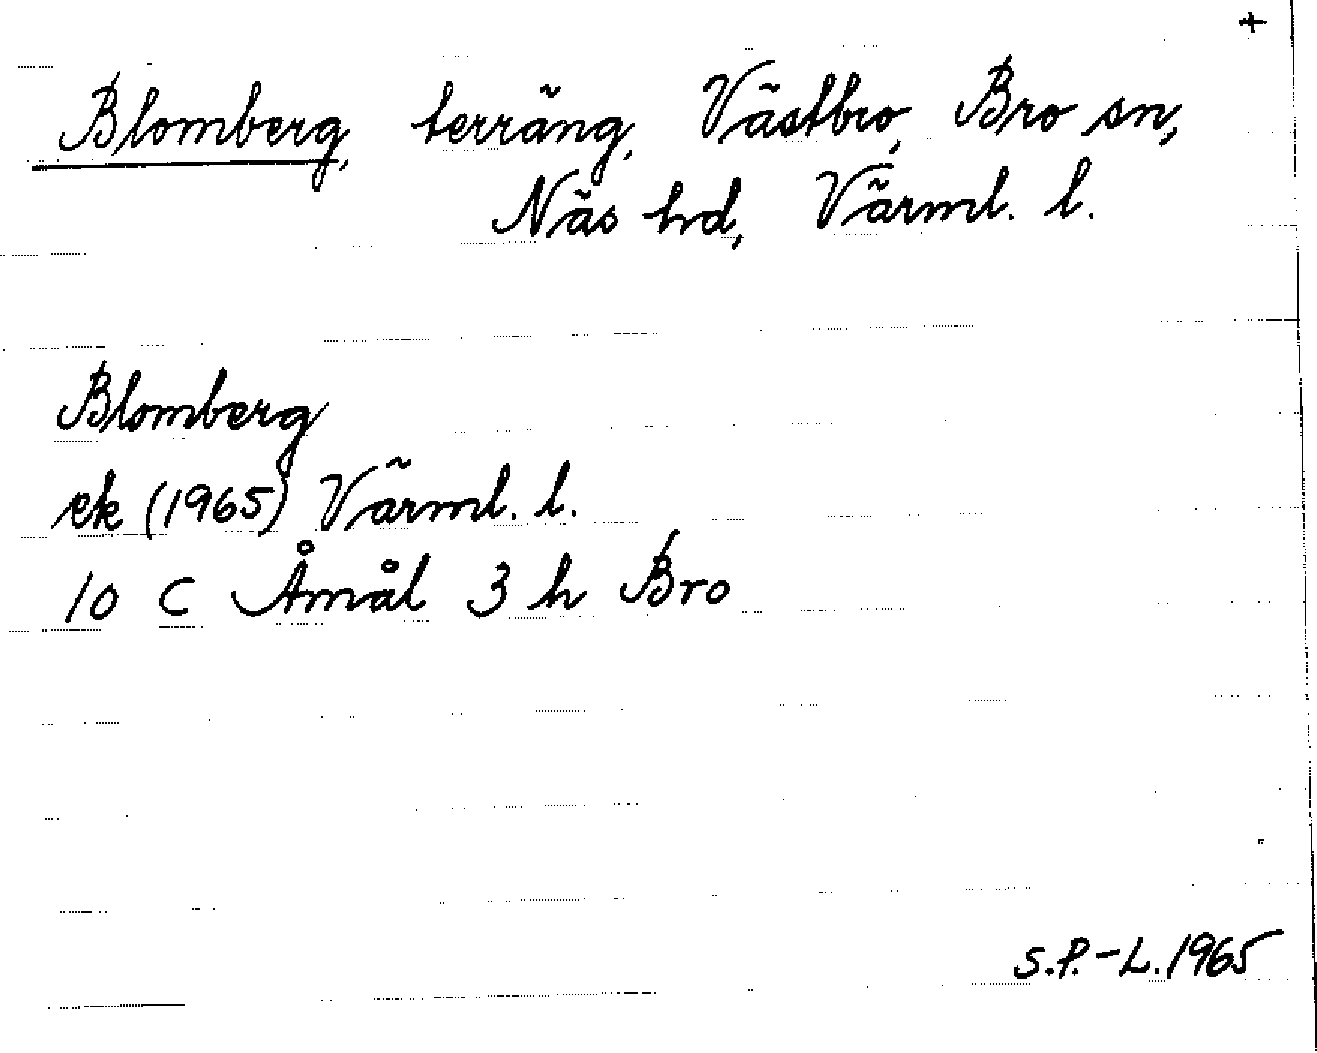 +
Blomberg, terräng, Västbro, Bro sn,
Näs hd, Värml. l.
Blomberg
ek (1965) Värml. l.
10 C Åmål 3 h Bro
S.P.-L. 1965